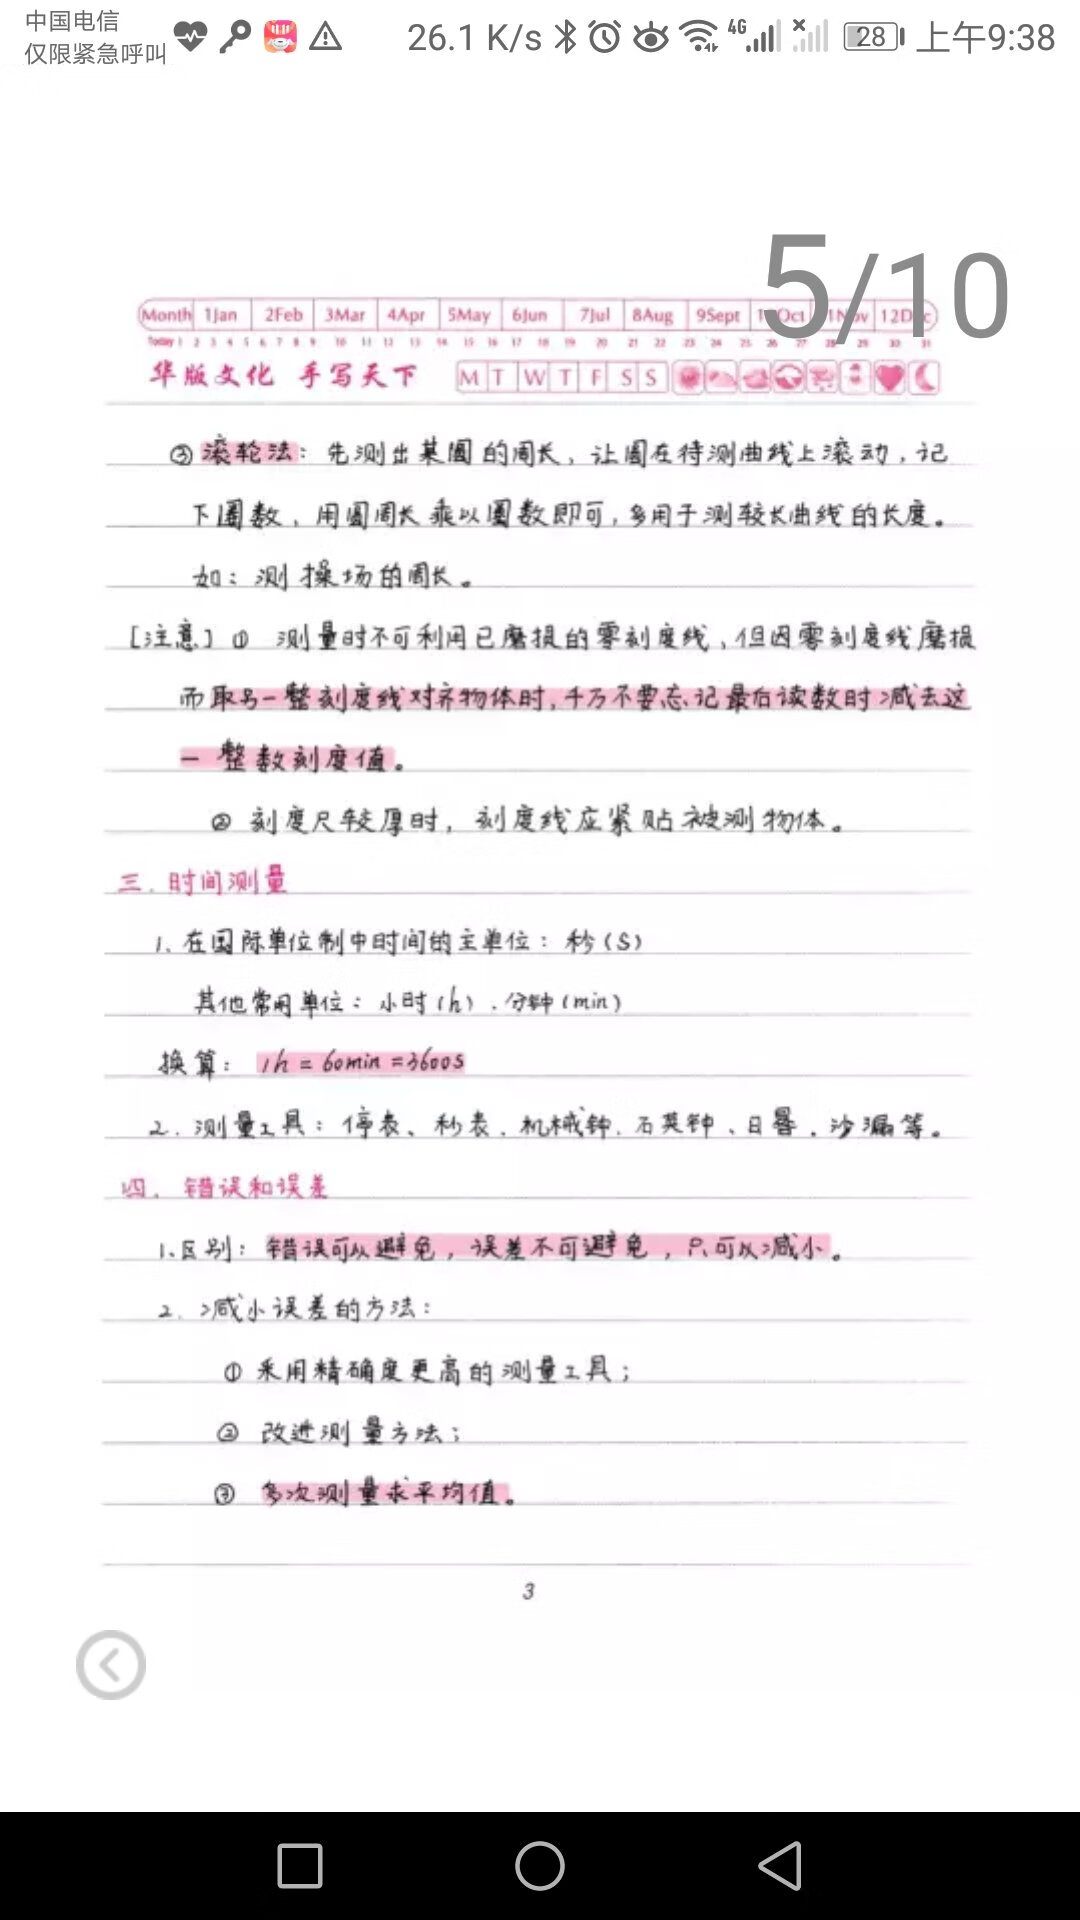 中国电信
仅限紧急呼叫
26.1 K/s 4G 28 上午9:38
5/10
Month 1Jan 2Feb 3Mar 4Apr 5May 6Jun 7Jul 8Aug 9Sept
Today 1 2 3 4 5 6 7 8 9 10 11 12 13 14 15 16 17 18 19 20 21 22 23 24 25 26 27 28 29 30 31
华版文化 手写天下 M T W T F S S
③ 滚轮法：先测出某圆的周长，让圆在待测曲线上滚动，记
下圈数，用圆周长乘以圈数即可，多用于测较长曲线的长度。
如：测操场的周长。
[注意] ① 测量时不可利用已磨损的零刻度线，但因零刻度线磨损
而取另一整刻度线对齐物体时，千万不要忘记最后读数时减去这
一整数刻度值。
② 刻度尺较厚时，刻度线应紧贴被测物体。
三、时间测量
1. 在国际单位制中时间的主单位：秒(S)
其他常用单位：小时(h)、分钟(min)
换算：1h = 60min = 3600s
2. 测量工具：停表、秒表、机械钟、石英钟、日晷、沙漏等。
四、错误和误差
1. 区别：错误可以避免，误差不可避免，只可以减小。
2. 减小误差的方法：
① 采用精确度更高的测量工具；
② 改进测量方法；
③ 多次测量求平均值。
3